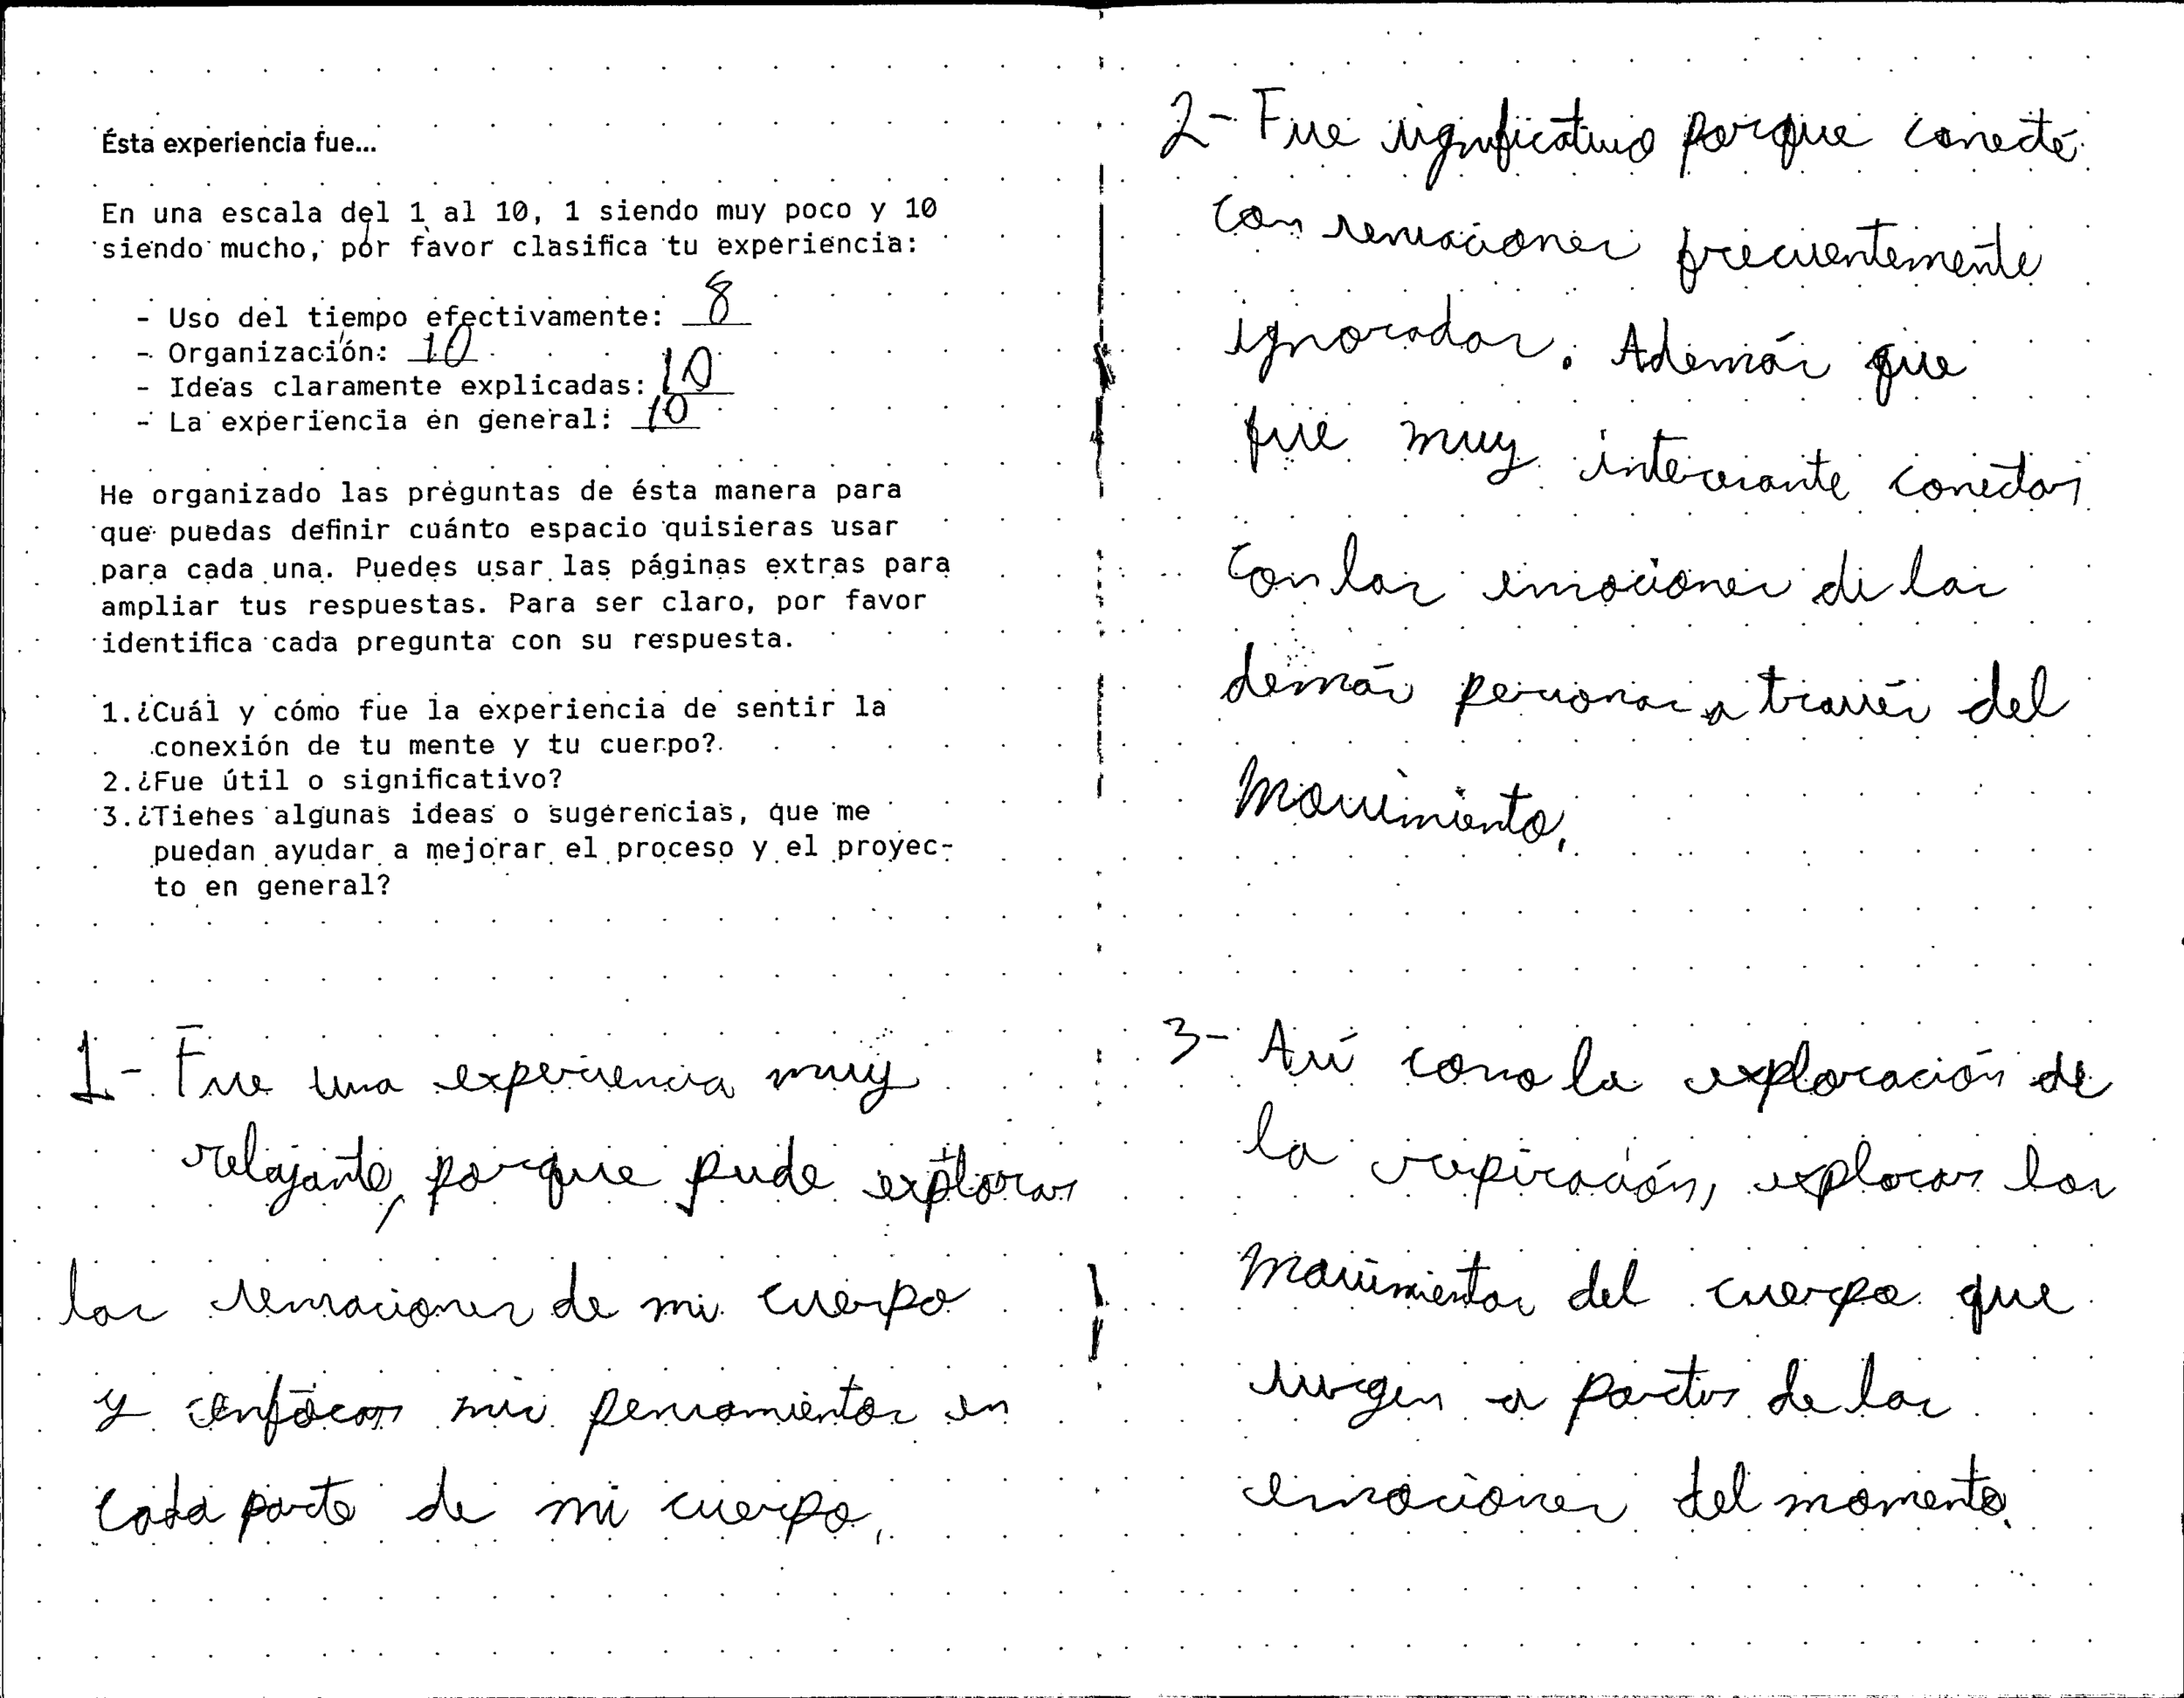 Ésta experiencia fue...
En una escala del 1 al 10, 1 siendo muy poco y 10
siendo mucho, por favor clasifica tu experiencia:
- Uso del tiempo efectivamente: 8
- Organización: 10
- Ideas claramente explicadas: 10
- La experiencia en general: 10
He organizado las preguntas de ésta manera para
que puedas definir cuánto espacio quisieras usar
para cada una. Puedes usar las páginas extras para
ampliar tus respuestas. Para ser claro, por favor
identifica cada pregunta con su respuesta.
1.¿Cuál y cómo fue la experiencia de sentir la
conexión de tu mente y tu cuerpo?
2.¿Fue útil o significativo?
3.¿Tienes algunas ideas o sugerencias, que me
puedan ayudar a mejorar el proceso y el proyec-
to en general?
1- Fue una experiencia muy
relajante, porque pude explorar
las sensaciones de mi cuerpo
y enfocar mis pensamientos en
cada parte de mi cuerpo.
2- Fue significativo porque conecté
con sensaciones frecuentemente
ignoradas. Además que
fue muy interesante conectar
con las emociones de las
demás personas a través del
movimiento.
3- Así como la exploración de
la respiración, explorar los
movimientos del cuerpo que
surgen a partir de las
emociones del momento.